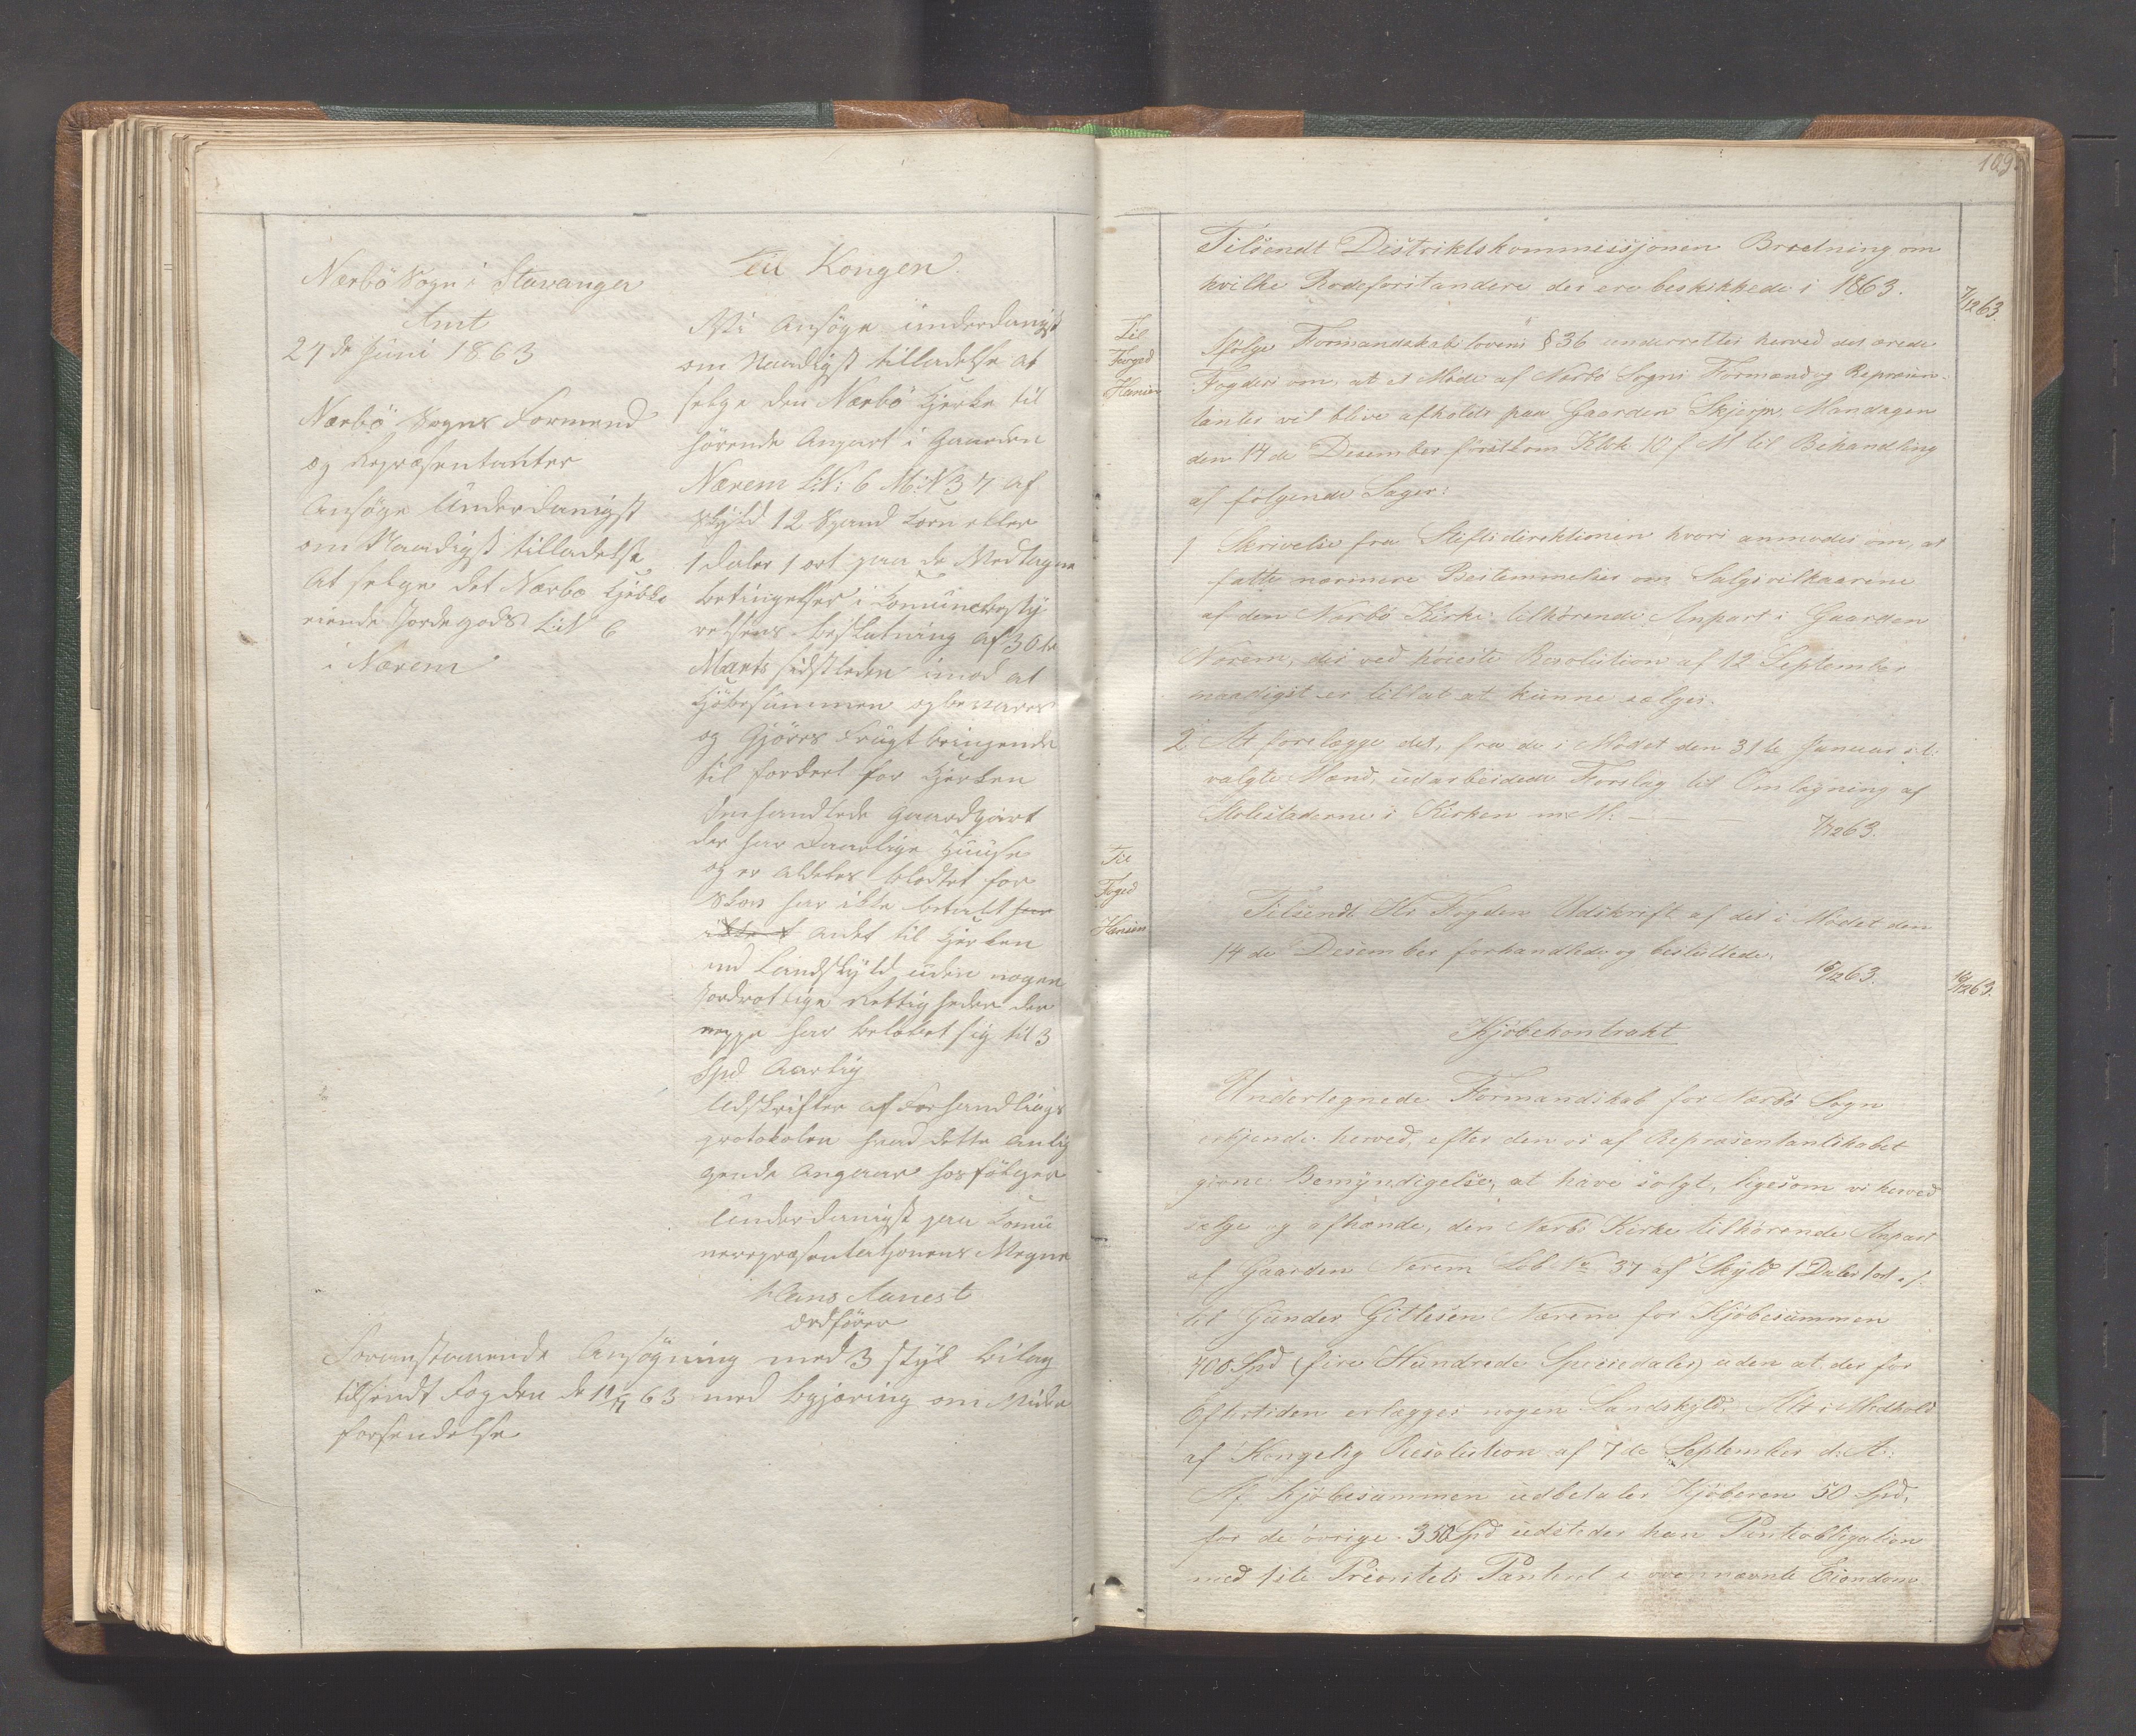 Nærbö Sogn i Stavanger
Amt
27de Juni 1863
Nærbö Sogns Formend
og Repræsentanter
Ansöge Underdanigst
om Naadigst tilladelse
At selge det Nærbø Kjerke
eiende Jordegods LN 6
i Nærem
Til Kongen.
Vi Ansöge underdanigst
om Naadigst tilladelse at
selge den Nærbö Kjerke til
hörende Anpart i Gaarden
Nærem LN: 6 M:N 37 af
Skyld 12 Spand Korn eller
1 Daler 1 ort paa de Vedtagne
betingelser i Komunebesty
relsens beslutning af 30te
Marts sidstleden imod at
Kjöbesummen opbevares
og Gjöres Frugtbringende
til fordel for Kjerken
Omhandlede Gaardpart
der har Daarlige Huuse
og er aldeles blottet for
Skov har ikke betalt har
ikke t Andet til Kjerken
end Landskyld uden nogen
Jordrotlige Rettigheder der
neppe har beløbet sig til 3
Spd Aarlig
Udskrifter af Forhandlings
protokolen hvad dette Anlig
gende Angaar hosfölger
Underdanigst paa Komu
nerepræsentationens Vegne
Hans Aanest
Ordförer
Foranstaaende Ansögning med 3 styk bilag
tilsendt Fogden de 11/7 63 med begjæring om Videre
forsendelse
109.
Tilsendt Distriktskommissjonen Bretning om
hvilke Rodeforstandere der ere beskikkede i 1863.
7/12 63.
Til
Foged
Hansen
Ifölge Formandskabslovens § 36 underrettes herved det ærede
Fogderi om, at et Möde af Nærbö Sogns Formænd og Repræsen-
tanter vil blive afholdt paa Gaarden Skjerpe, Mandagen
den 14de Desember förstkom Klok 10 f M til Behandling
af følgende Sager:
1 Skrivelse fra Stiftsdirektionen hvori anmodes om, at
fatte nærmere Bestemmelser om Salgsvilkaarene
af den Nærbö Kirke tilhörende Anpart i Gaarden
Nærem, der ved höieste Resolution af 12 September
naadigst er tillat at kunne sælges.
2 At forelægge det, fra de i Mödet den 31te Januar d. A:
valgte Mænd, udarbeidede Forslag til Omlægning af
Stolestaderne i Kirken m: M:
7/12 63.
Til
Foged
Hansen
Tilsendt Hr. Fogden Udskrift af det i Mödet den
14de Desember forhandlede og besluttede.
16/12 63.
16/12 63.
Kjöbekontrakt
Undertegnede Formandskab for Nærbö Sogn
erkjende herved, efter den os af Repræsentantskabet
givne Bemyndigelse, at have solgt, ligesom vi herved
sælge og afhænde, den Nærbö Kirke tilhörende Anpart
af Gaarden Nærem Löb No 37 af Skyld 1 Daler 1 ort
til Gunder Gitlesen Nærem for Kjöbesummen
400 Spd (fire Hundrede Speciedaler) uden at der for
Eftertiden erlægges nogen Landskyld. Alt i Medhold
af Kongelig Resolution af 7de September d: A:.
Af Kjöbesummen udbetaler Kjöberen 50 Spd,
for de övrige 350 Spd udsteder han Panteobligation
med 1ste Prioritets Panteret i ovennævnte Eiendom